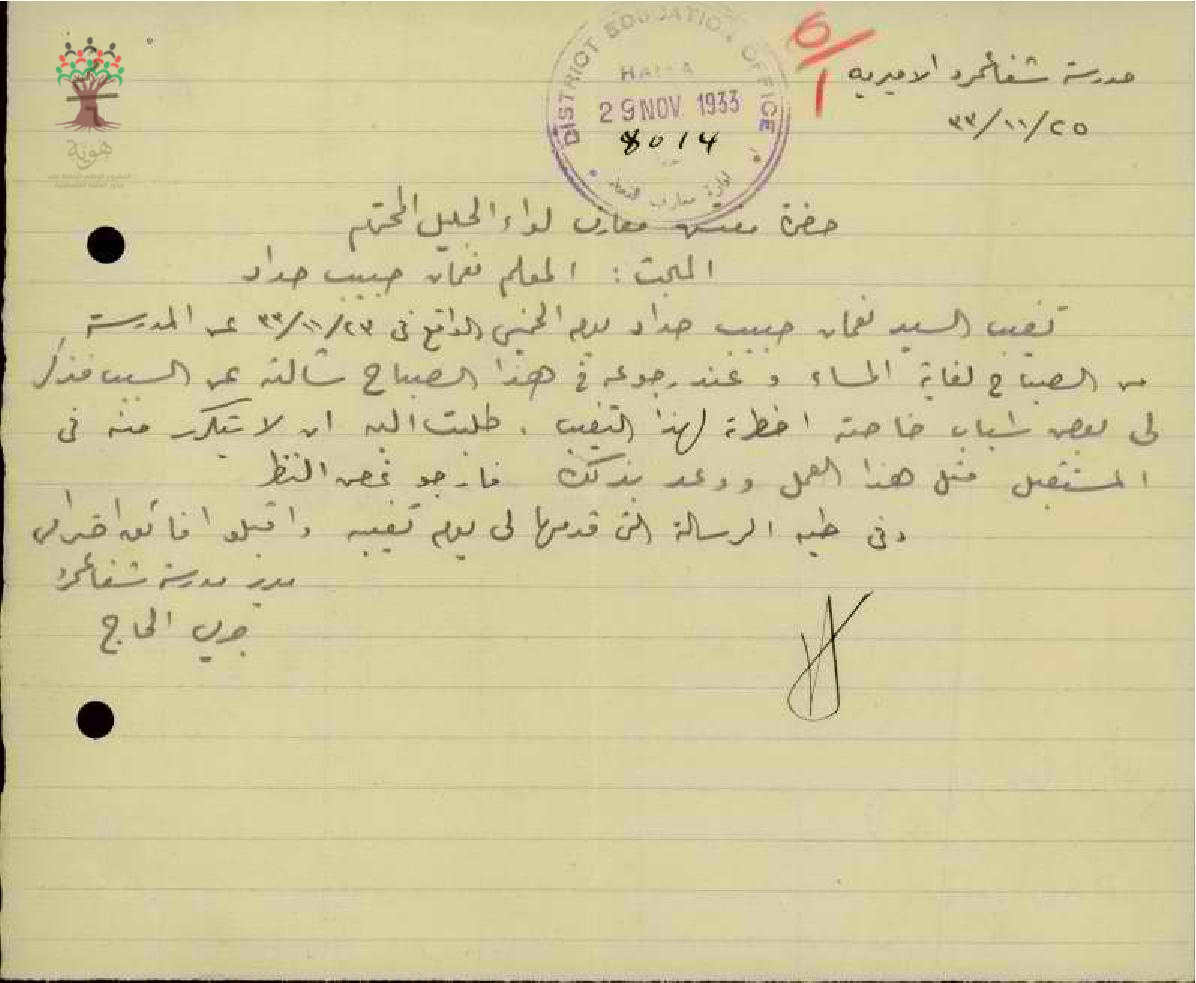 مدرسة شفاعمرو الاميريه
٣٣/١١/٢٥
6/1
DISTRICT EDUCATION OFFICE
HAIFA
29 NOV 1933
8014
هوية
حضرة مفتش معارف لواء الجليل المحترم
المبحث : المعلم نعمان حبيب حداد
تغيب السيد نعمان حبيب حداد يوم الخميس الواقع في ٣٣/١١/٢٣ عن المدرسة
من الصباح لغاية المساء وعند رجوعه في هذا الصباح سألته عن السبب فذكر
لي بعض اسباب خاصة اضطرته لهذا التغيب . طلبت اليه ان لا يتكرر منه في
المستقبل مثل هذا العمل ووعد بذلك فارجو غض النظر
وفي طيه الرسالة التي قدمها لي يوم تغيبه واقبلوا فائق احترامي
مدير مدرسة شفاعمرو
الحاج